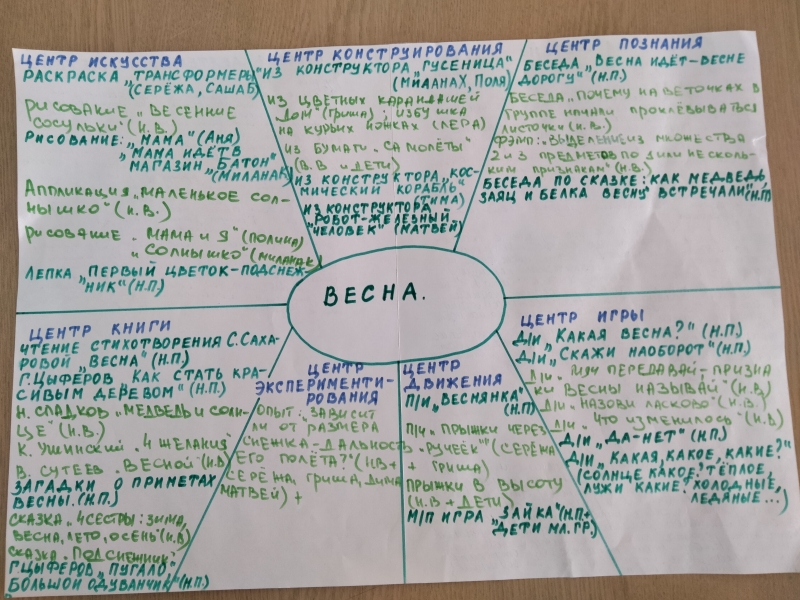 ЦЕНТР ИСКУССТВА
РАСКРАСКА „ТРАНСФОРМЕРЫ"
(СЕРЁЖА, САШАБ)
РИСОВАНИЕ „ВЕСЕННИЕ
СОСУЛЬКИ" (Н.В.)
РИСОВАНИЕ: „МАМА" (АНЯ)
„МАМА ИДЁТ В
МАГАЗИН „БАТОН"
(МИЛАНАК)
АППЛИКАЦИЯ „МАЛЕНЬКОЕ СОЛ-
НЫШКО" (Н.В.)
РИСОВАНИЕ „МАМА И Я" (ПОЛИНА)
„СОЛНЫШКО" (МИЛАНАК)
ЛЕПКА „ПЕРВЫЙ ЦВЕТОК-ПОДСНЕЖ-
НИК" (Н.П.)
ЦЕНТР КОНСТРУИРОВАНИЯ
ИЗ КОНСТРУКТОРА „ГУСЕНИЦА"
(МИЛАНАХ, ПОЛЯ)
ИЗ ЦВЕТНЫХ КАРАНДАШЕЙ
„ДОМ" (ГРИША); ИЗБУШКА
НА КУРЬИХ НОЖКАХ (ЛЕРА)
ИЗ БУМАГИ „САМОЛЁТЫ"
(В.В И ДЕТИ)
ИЗ КОНСТРУКТОРА „КОС-
МИЧЕСКИЙ КОРАБЛЬ"
(ТИМА)
ИЗ КОНСТРУКТОРА
„РОБОТ-ЖЕЛЕЗНЫЙ
ЧЕЛОВЕК" (МАТВЕЙ)
ЦЕНТР ПОЗНАНИЯ
БЕСЕДА „ВЕСНА ИДЁТ-ВЕСНЕ
ДОРОГУ" (Н.П.)
БЕСЕДА „ПОЧЕМУ НА ВЕТОЧКАХ В
ГРУППЕ НАЧАЛИ ПРОКЛЁВЫВАТЬСЯ
ЛИСТОЧКИ (Н.В.)
ФЭМП: „ВЫДЕЛЕНИЕ ИЗ МНОЖЕСТВА
2 И 3 ПРЕДМЕТОВ ПО 1 ИЛИ НЕСКОЛЬ-
КИМ ПРИЗНАКАМ" (Н.В.)
БЕСЕДА ПО СКАЗКЕ: КАК МЕДВЕДЬ,
ЗАЯЦ И БЕЛКА ВЕСНУ ВСТРЕЧАЛИ" (Н.П)
ВЕСНА.
ЦЕНТР КНИГИ
ЧТЕНИЕ СТИХОТВОРЕНИЯ С.САХА-
РОВОЙ „ВЕСНА" (Н.П.)
Г.ЦЫФЕРОВ КАК СТАТЬ КРА-
СИВЫМ ДЕРЕВОМ" (Н.П.)
Н. СЛАДКОВ „МЕДВЕДЬ И СОЛН-
ЦЕ" (Н.В.)
К. УШИНСКИЙ „4 ЖЕЛАНИЯ"
В. СУТЕЕВ „ВЕСНОЙ" (Н.В)
ЗАГАДКИ О ПРИМЕТАХ
ВЕСНЫ. (Н.П.)
СКАЗКА „4 СЕСТРЫ: ЗИМА,
ВЕСНА, ЛЕТО, ОСЕНЬ" (Н.В)
СКАЗКА „ПОДСНЕЖНИК"
Г.ЦЫФЕРОВ „ПУГАЛО"
БОЛЬШОЙ ОДУВАНЧИК" (Н.П.)
ЦЕНТР
ЭКСПЕРИМЕНТИ-
РОВАНИЯ
ОПЫТ: „ЗАВИСИТ
ЛИ ОТ РАЗМЕРА
СНЕЖКА-ДАЛЬНОСТЬ
ЕГО ПОЛЁТА?" (Н.В+
СЕРЁЖА, ГРИША, ДИМА
МАТВЕЙ) +
ЦЕНТР
ДВИЖЕНИЯ
П/И „ВЕСНЯНКА"
(Н.П)
П/И „ПРЫЖКИ ЧЕРЕЗ
„РУЧЕЕК"" (СЕРЁЖА
+ ГРИША)
ПРЫЖКИ В ВЫСОТУ
(Н.В + ДЕТИ)
М/П ИГРА „ЗАЙКА" (Н.П+
ДЕТИ МЛ. ГР.)
ЦЕНТР ИГРЫ
Д/И „КАКАЯ ВЕСНА?" (Н.П.)
Д/И „СКАЖИ НАОБОРОТ" (Н.П.)
Д/И „МЯЧ ПЕРЕДАВАЙ-ПРИЗНА
КИ ВЕСНЫ НАЗЫВАЙ" (Н.В.)
Д/И „НАЗОВИ ЛАСКОВО" (Н.В.)
Д/И „ЧТО ИЗМЕНИЛОСЬ" (Н.В)
Д/И „ДА-НЕТ" (Н.П.)
Д/И „КАКАЯ, КАКОЕ, КАКИЕ?"
(СОЛНЦЕ КАКОЕ? ТЁПЛОЕ,
ЛУЖИ КАКИЕ? ХОЛОДНЫЕ,
ЛЕДЯНЫЕ...)